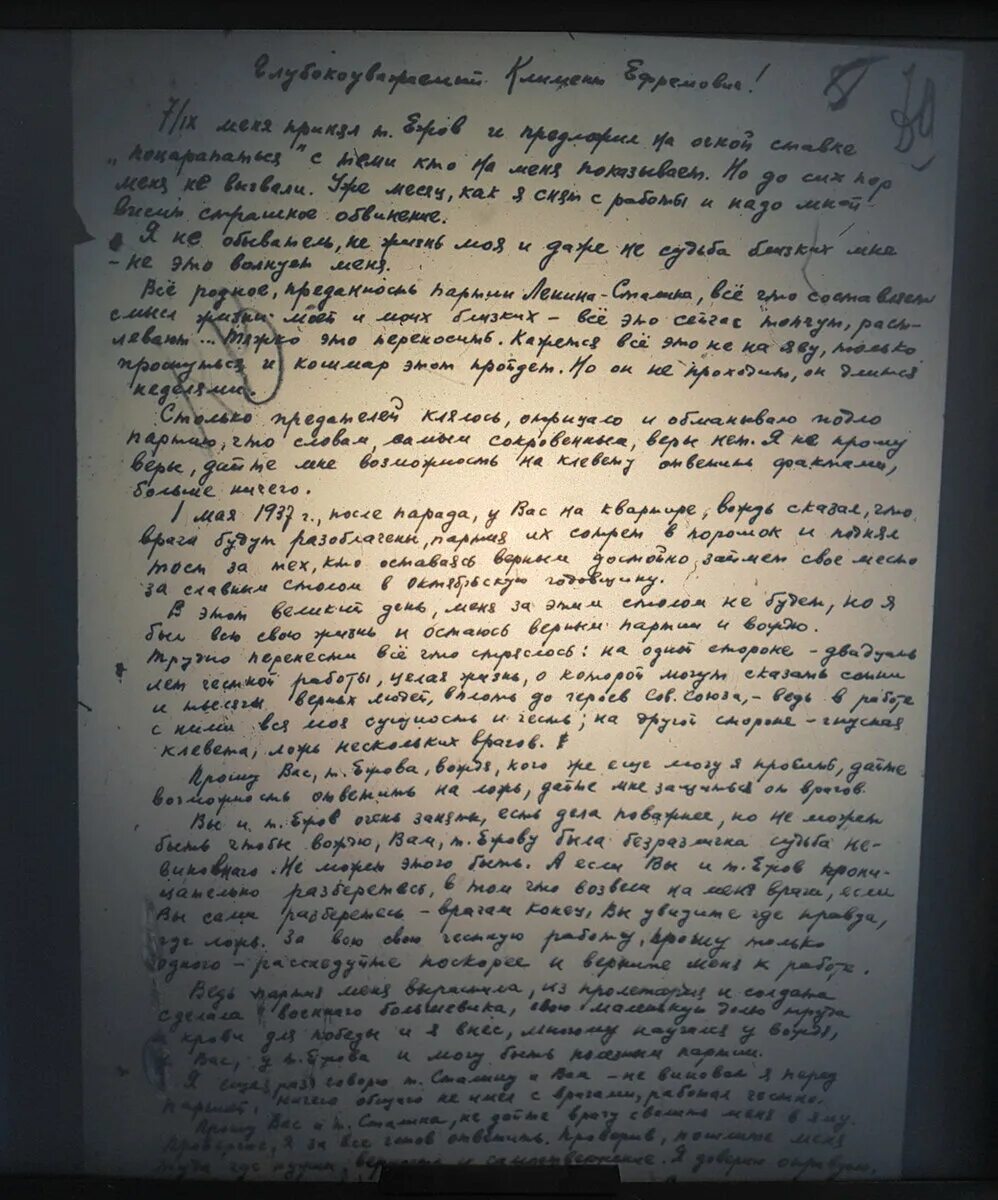 Глубокоуважаемый Климент Ефремович!
7/IX меня принял т. Ежов и предложил на очной ставке
„поцарапаться" с теми кто на меня показывает. Но до сих пор
меня не вызвали. Уже месяц, как я снят с работы и надо мной
висит страшное обвинение.
Я не обыватель, не жизнь моя и даже не судьба близких мне
- не это волнует меня.
Всё родное, преданность партии Ленина-Сталина, всё что составляет
смысл жизни моей и моих близких - всё это сейчас топчут, расп-
левают... Тяжко это переносить. Кажется всё это не на яву, только
проснуться и кошмар этот пройдет. Но он не проходит, он длится
неделями.
Столько предателей клялось, отрицало и обманывало подло
партию, что словам, самым сокровенным, веры нет. Я не прошу
веры, дайте мне возможность на клевету ответить фактами,
больше ничего.
1 мая 1937 г., после парада, у Вас на квартире, вождь сказал, что
враги будут разоблачены, партия их сотрет в порошок и поднял
тост за тех, кто оставаясь верным достойно займет свое место
за славным столом в октябрьскую годовщину.
В этот великий день, меня за этим столом не будет, но я
был всю свою жизнь и остаюсь верным партии и вождю.
Трудно перенести всё что стряслось: на одной стороне - двадцать
лет честной работы, целая жизнь, о которой могут сказать сотни
и тысячи верных людей, вплоть до героев Сов. Союза, - ведь в работе
с ними вся моя сущность и честь; на другой стороне - гнусная
клевета, ложь нескольких врагов.
Прошу Вас, т. Ежова, вождя, кого же еще могу я просить, дайте
возможность ответить на ложь, дайте мне защититься от врагов.
Вы и т. Ежов очень заняты, есть дела поважнее, но не может
быть чтобы вождю, Вам, т. Ежову была безразлична судьба не-
виновного. Не может этого быть. А если Вы и т. Ежов прони-
цательно разберетесь, в том что возвели на меня враги, если
Вы сами разберетесь - врагам конец, Вы увидите где правда,
где ложь. За всю свою честную работу, прошу только
одного - расследуйте поскорее и верните меня к работе.
Ведь партия меня вырастила, из пролетария и солдата
сделала военного большевика, свою маленькую долю труда
и крови для победы и я внес, многому научился у вождя,
у Вас, у т. Ежова и могу быть полезным партии.
Я еще раз говорю т. Сталину и Вам - не виноват я перед
партией, ничего общего не имел с врагами, работал честно.
Прошу Вас и т. Сталина, не дайте врагу свалить меня в яму.
Проверьте, я за все готов ответить. Проверив, пошлите меня
туда где нужны верность и самоотвержение. Я доверие оправдаю,